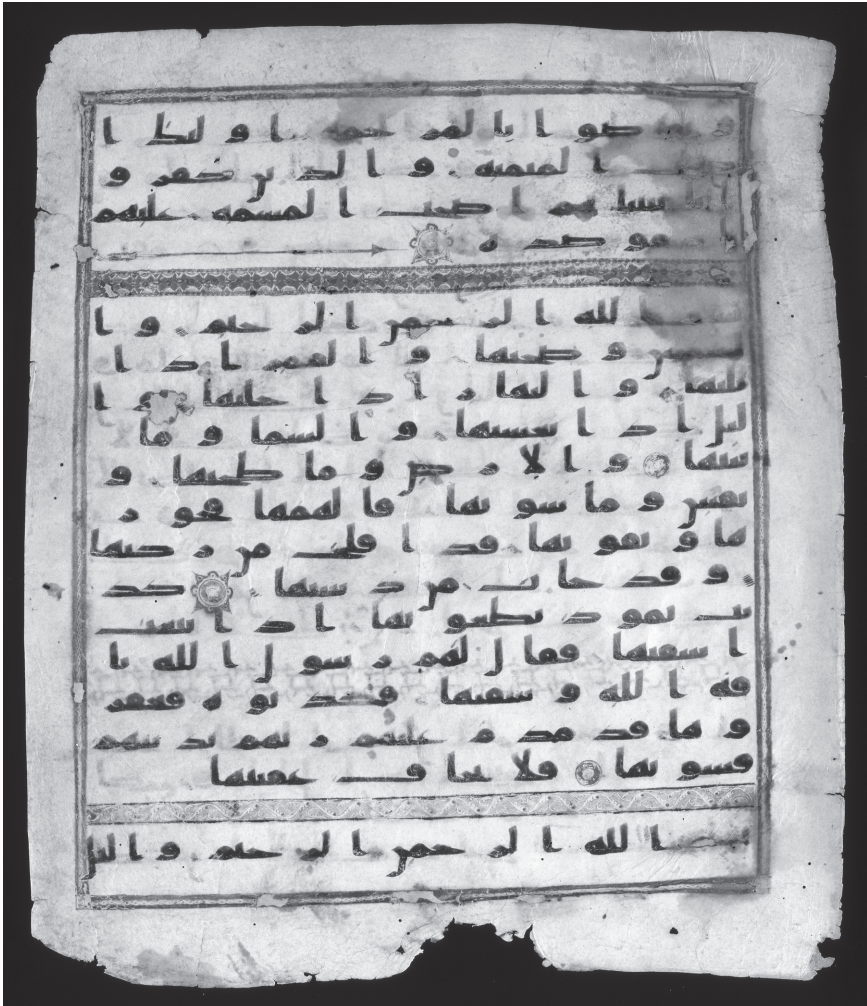 و تواصوا بالمرحمه اولىك ا
صحب الميمنه والذين كفرو
ا بايتنا هم اصحب المشمه عليهم
نار موصده
بسم الله الرحمن الرحيم وا
لشمس وضحيها والقمر اذا
تليها والنهار اذا جليها وا
ليل اذا يغشيها والسما وما
بنيها والارض وما طحيها و
نفس وما سويها فالهمها فجور
ها وتقويها قد افلح من زكيها
وقد خاب من دسيها كذ
بت ثمود بطغويها اذ انبعث
اشقيها فقال لهم رسول الله نا
قه الله وسقيها فكذبوه فعقر
وها فدمدم عليهم ربهم بذنبهم
فسويها فلا يخاف عقبيها
بسم الله الرحمن الرحيم واليل